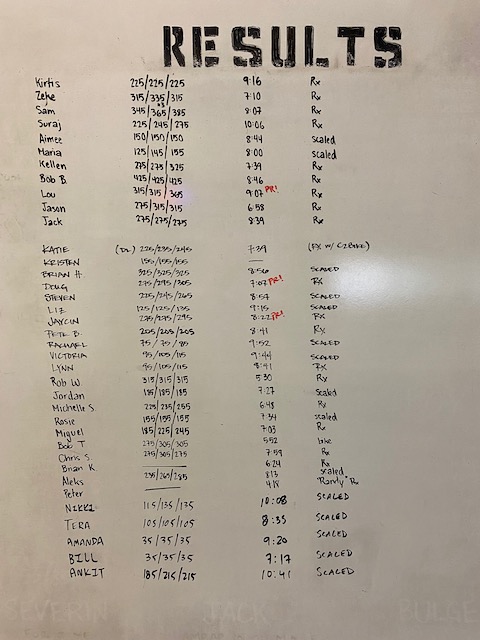 RESULTS
Kirtis 225/225/225 9:16 Rx
Zeke 315/335/315 7:10 Rx
Sam 345/365/385 8:07 Rx
Suraj 225/245/275 10:06 Rx
Aimee 150/150/150 8:44 scaled
Maria 125/145/155 8:00 scaled
Kellen 275/275/325 7:39 Rx
Bob B. 425/425/425 8:46 Rx
Lou 315/315/365 9:07 PR! Rx
Jason 275/315/315 6:58 Rx
Jack 275/275/275 8:39 Rx
KATIE 225/235/245 7:39
KRISTEN 155/155/155 —
BRIAN H. 325/325/325 8:56 SCALED
DOUG 275/295/305 7:07 PR! RX
STEVEN 225/245/265 8:57 SCALED
LIZ 125/125/135 9:15 SCALED
JAYCIN 275/275/295 8:22 PR! Rx
PETE B. 205/205/205 8:41 Rx
RACHAEL 75/75/85 9:52 SCALED
VICTORIA 95/105/115 9:44 SCALED
LYNN 95/105/115 8:41 Rx
Rob W 315/315/315 5:30 Rx
Jordan 185/185/185 7:27 Scaled
Michelle S 225/235/255 6:48 Rx
Rosie 155/155/155 7:34 scaled
Miguel 185/225/245 7:03 Rx
Bob T 275/305/305 552 bike
Chris S. 275/305/275 7:59 Rx
Brian K. — 6:24 Rx
Aleks 235/265/285 8:13 scaled
Peter — 4:18 "Randy" Rx
NIKKI 115/135/135 10:08 SCALED
TERA 105/105/105 8:33 SCALED
AMANDA 35/35/35 9:20 SCALED
BILL 35/35/35 7:17 SCALED
ANKIT 185/215/215 10:41 SCALED
SEVERIN JACK BULGE